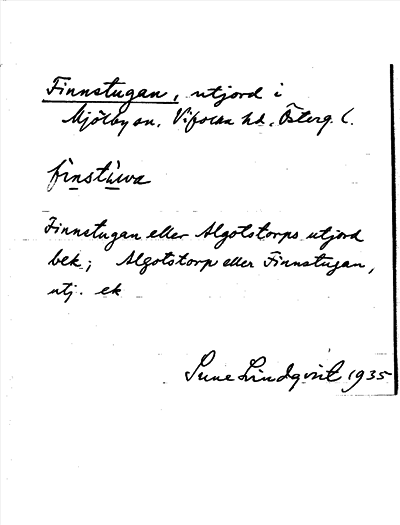 Finnstugan, utjord i
Mjölby sn, Vifolka hd, Österg. l.
fìnstùwa
Finnstugan eller Algotstorps utjord
bek; Algotstorp eller Finnstugan,
utj. ek
Sune Lindqvist 1935